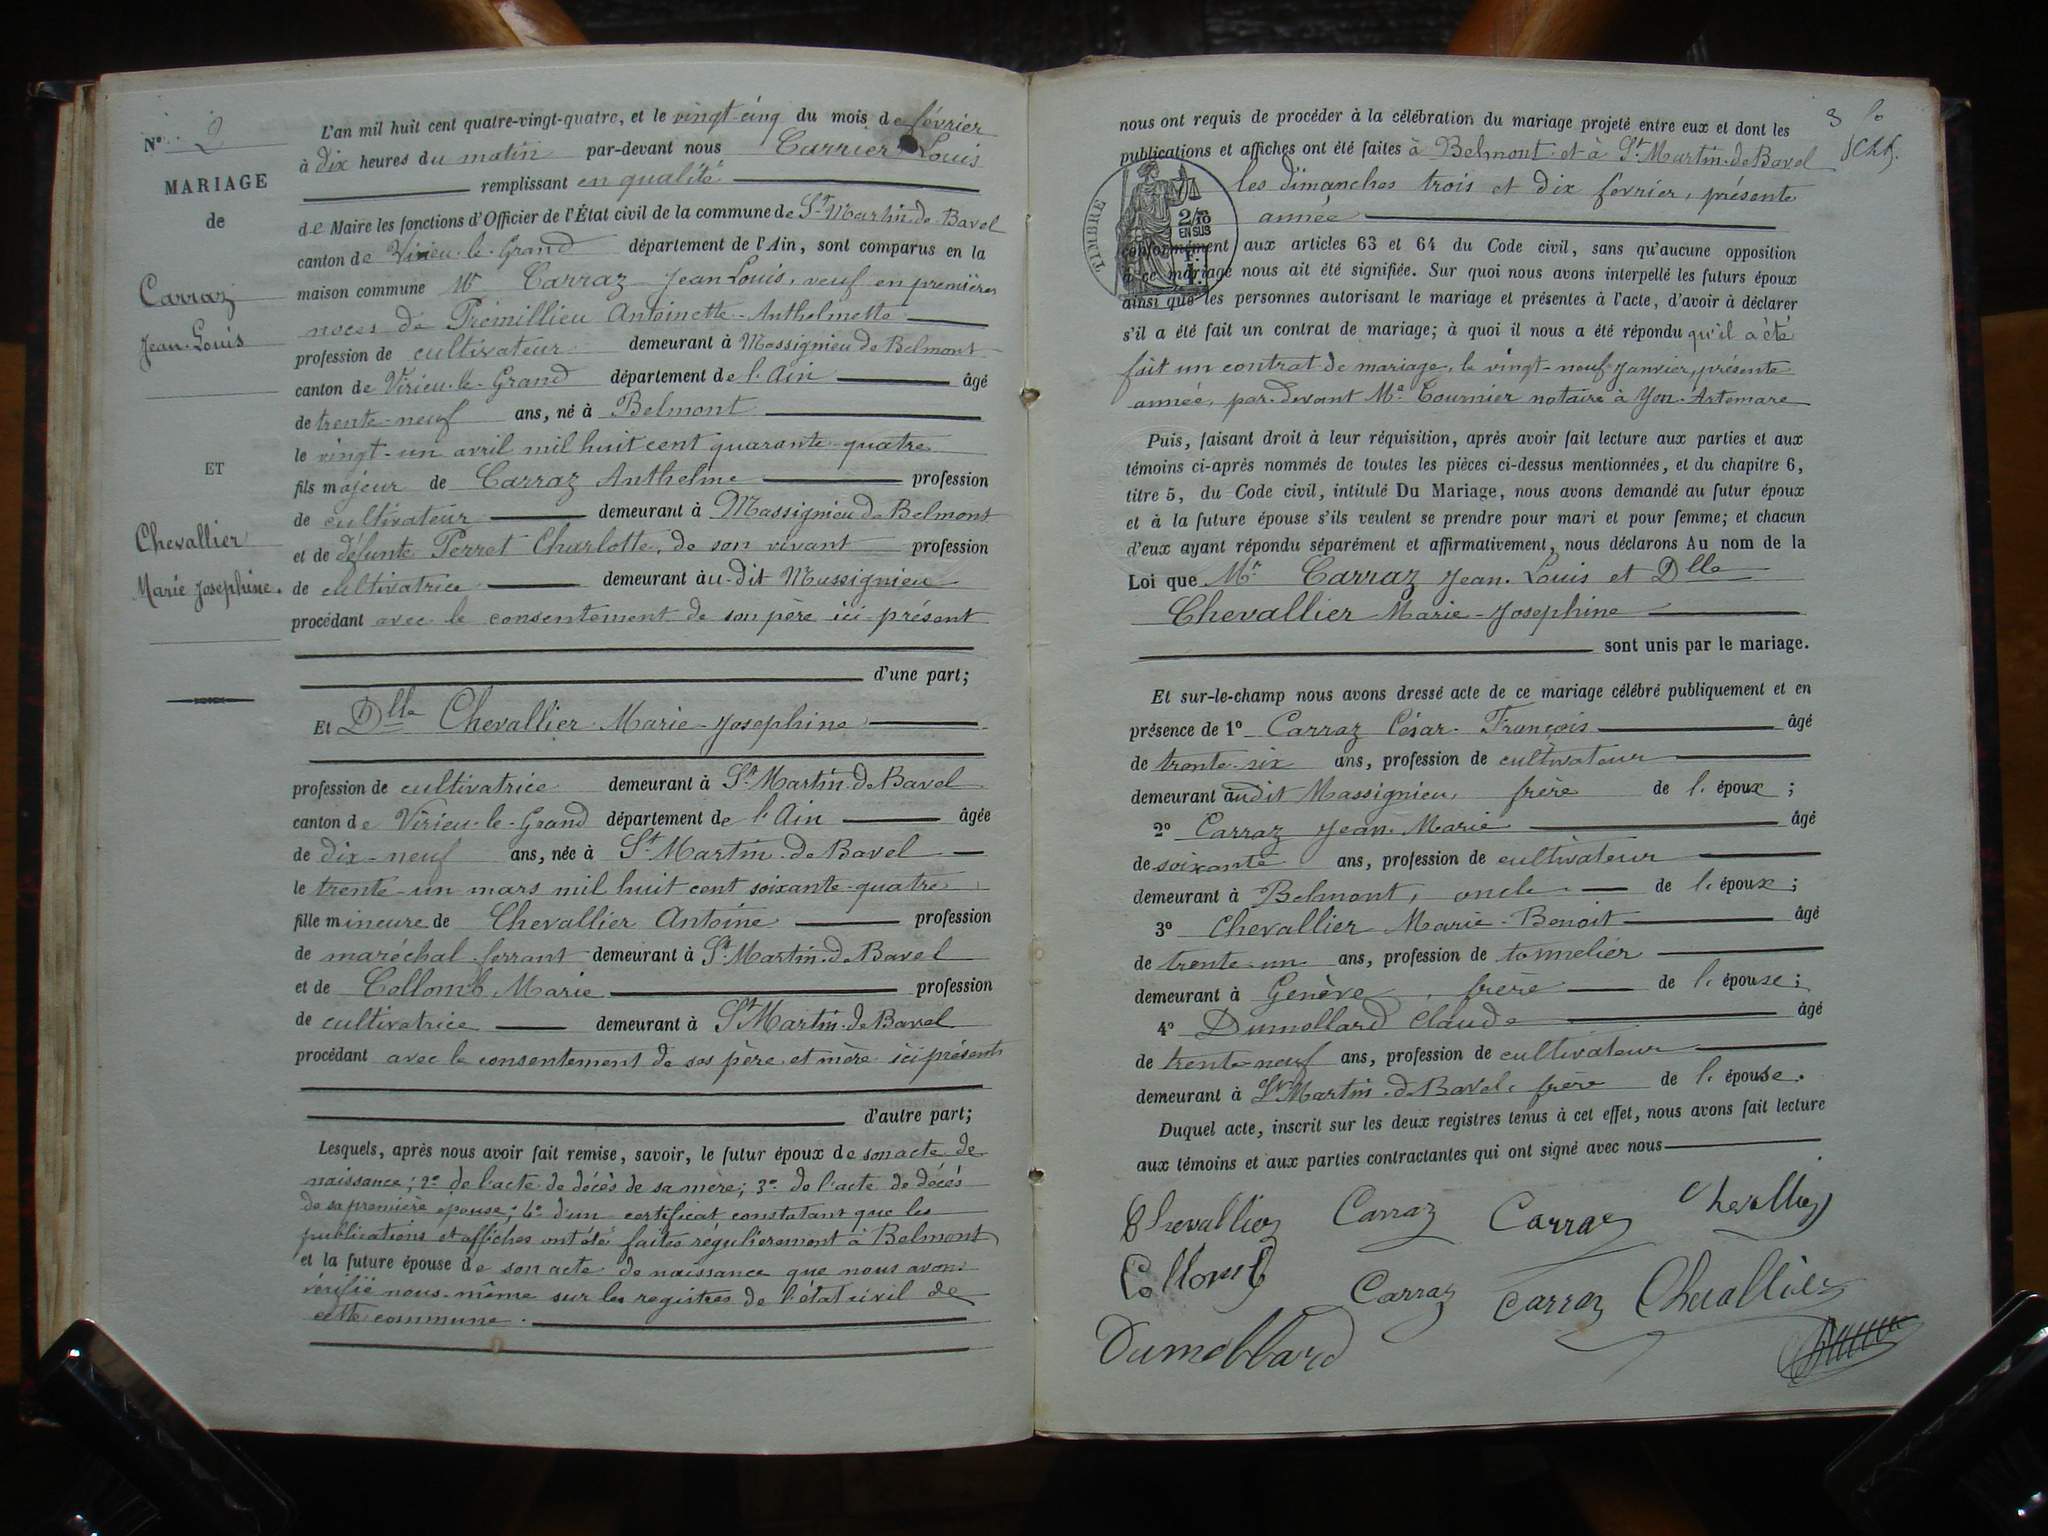 N° 2
MARIAGE
de
Carraz
Jean-Louis
ET
Chevallier
Marie Josephine.
L'an mil huit cent quatre-vingt-quatre, et le vingt-cinq du mois de février
à dix heures du matin par-devant nous Carrier Louis
remplissant en qualité
de Maire les fonctions d'Officier de l'État civil de la commune de St Martin-de-Bavel
canton de Virieu-le-Grand département de l'Ain, sont comparus en la
maison commune Mr Carraz Jean Louis, veuf en premières
noces de Prémillieu Antoinette-Anthelmette
profession de cultivateur demeurant à Massignieu de Belmont
canton de Virieu-le-Grand département de l'Ain âgé
de trente-neuf ans, né à Belmont
le vingt-un avril mil huit cent quarante-quatre
fils majeur de Carraz Anthelme profession
de cultivateur demeurant à Massignieu de Belmont
et de défunte Perret Charlotte, de son vivant profession
de cultivatrice demeurant au-dit Massignieu
procédant avec le consentement de son père ici-présent
d'une part;
Et Dlle Chevallier Marie-Josephine
profession de cultivatrice demeurant à St Martin-de-Bavel
canton de Virieu-le-Grand département de l'Ain âgée
de dix-neuf ans, née à St Martin-de-Bavel
le trente-un mars mil huit cent soixante-quatre
fille mineure de Chevallier Antoine profession
de maréchal-ferrant demeurant à St Martin-de-Bavel
et de Collomb Marie profession
de cultivatrice demeurant à St Martin-de-Bavel
procédant avec le consentement de ses père et mère ici présents
d'autre part;
Lesquels, après nous avoir fait remise, savoir, le futur époux de son acte de
naissance; 2° de l'acte de décès de sa mère; 3° de l'acte de décès
de sa première épouse; 4° d'un certificat constatant que les
publications et affiches ont été faites régulièrement à Belmont
et la future épouse de son acte de naissance que nous avons
vérifié nous-même sur les registres de l'état civil de
cette commune.
3
nous ont requis de procéder à la célébration du mariage projeté entre eux et dont les
publications et affiches ont été faites à Belmont et à St Martin-de-Bavel
les dimanches trois et dix février, présente
année
TIMBRE
2/10
EN SUS
conformément aux articles 63 et 64 du Code civil, sans qu'aucune opposition
à ce mariage nous ait été signifiée. Sur quoi nous avons interpellé les futurs époux
ainsi que les personnes autorisant le mariage et présentes à l'acte, d'avoir à déclarer
s'il a été fait un contrat de mariage; à quoi il nous a été répondu qu'il a été
fait un contrat de mariage, le vingt-neuf Janvier, présente
année, par-devant Me Tournier notaire à Yon-Artemare
Puis, faisant droit à leur réquisition, après avoir fait lecture aux parties et aux
témoins ci-après nommés de toutes les pièces ci-dessus mentionnées, et du chapitre 6,
titre 5, du Code civil, intitulé Du Mariage, nous avons demandé au futur époux
et à la future épouse s'ils veulent se prendre pour mari et pour femme; et chacun
d'eux ayant répondu séparément et affirmativement, nous déclarons Au nom de la
Loi que Mr Carraz Jean-Louis et Dlle
Chevallier Marie-Josephine
sont unis par le mariage.
Et sur-le-champ nous avons dressé acte de ce mariage célébré publiquement et en
présence de 1° Carraz César-François âgé
de trente-six ans, profession de cultivateur
demeurant audit Massignieu, frère de l'époux;
2° Carraz Jean-Marie âgé
de soixante ans, profession de cultivateur
demeurant à Belmont, oncle de l'époux;
3° Chevallier Marie-Benoit âgé
de trente-un ans, profession de tonnelier
demeurant à Genève, frère de l'épouse;
4° Dumollard Claude âgé
de trente-neuf ans, profession de cultivateur
demeurant à St Martin-de-Bavel, frère de l'épouse.
Duquel acte, inscrit sur les deux registres tenus à cet effet, nous avons fait lecture
aux témoins et aux parties contractantes qui ont signé avec nous
Chevallier Carraz Carraz Chevallier
Collomb Carraz Carraz Chevallier
Dumollard